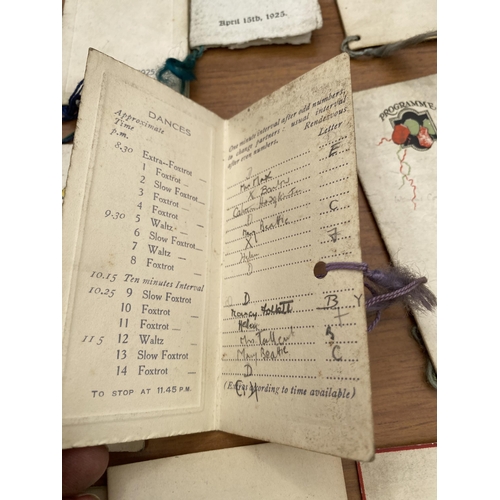 April 15th, 1925.
1925
PROGRAMME
DANCES
Approximate
Time
p.m.
8.30 Extra--Foxtrot
1 Foxtrot
2 Slow Foxtrot
3 Foxtrot
4 Foxtrot
9.30 5 Waltz
6 Slow Foxtrot
7 Waltz
8 Foxtrot
10.15 Ten minutes Interval
10.25 9 Slow Foxtrot
10 Foxtrot
11 Foxtrot
11.5 12 Waltz
13 Slow Foxtrot
14 Foxtrot
TO STOP AT 11.45 P.M.
One minute interval after odd numbers,
to change partners - usual interval
after even numbers. Rendezvous
Letter
E
X
C
X
Helen
D.
B
Helen
May Beattie C
D
(Extras according to time available)